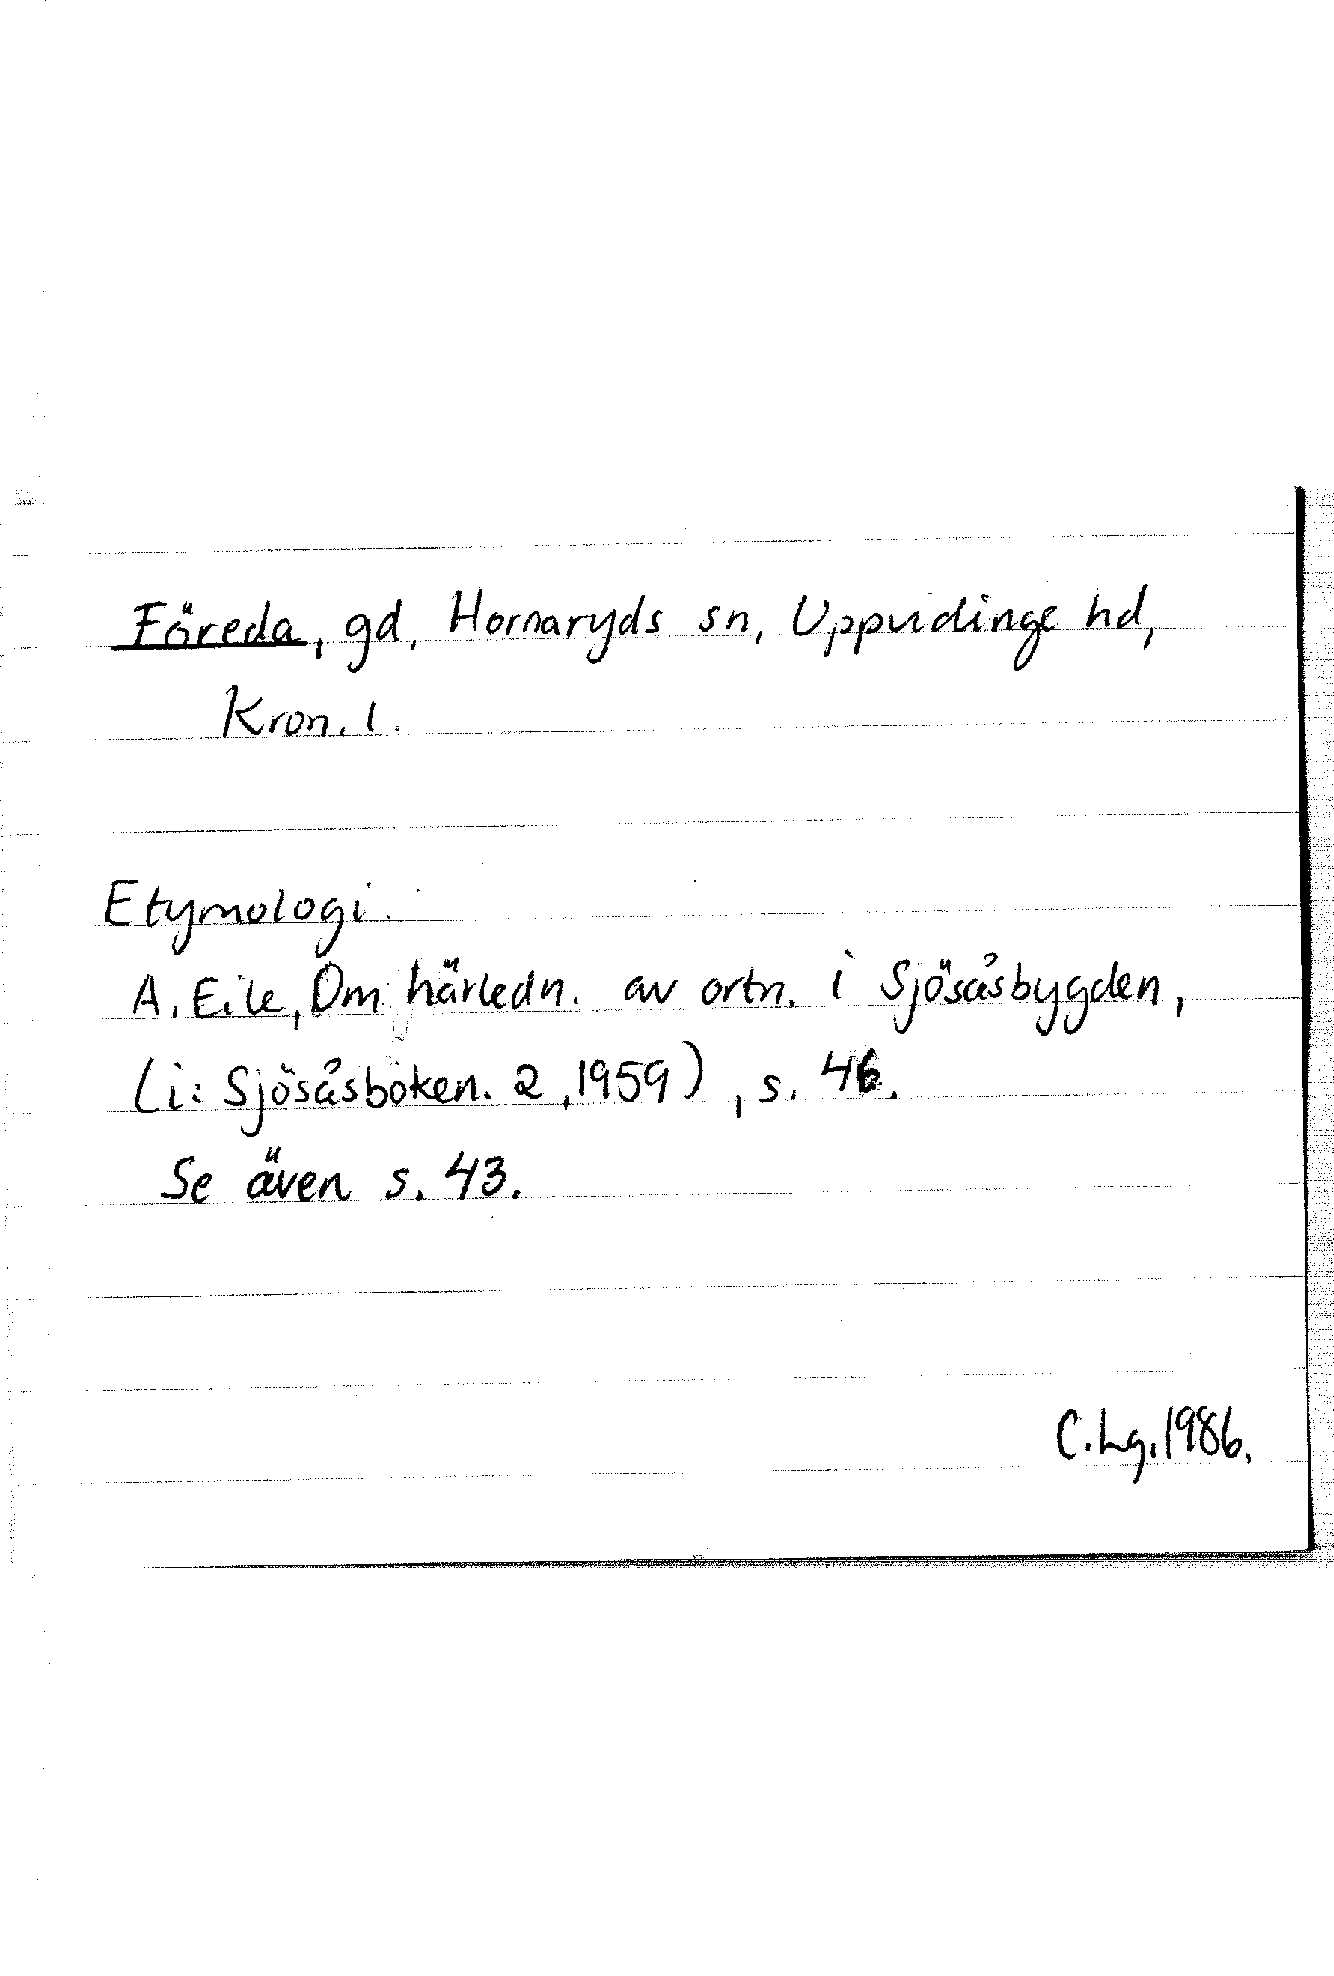 Föreda, gd, Hornaryds sn, Uppvidinge hd,
Kron. l.
Etymologi.
A. Eile, Om härledn. av ortn. i Sjösåsbygden,
(i: Sjösåsboken. 2, 1959), s. 46.
Se även s. 43.
C. Lg. 1986.